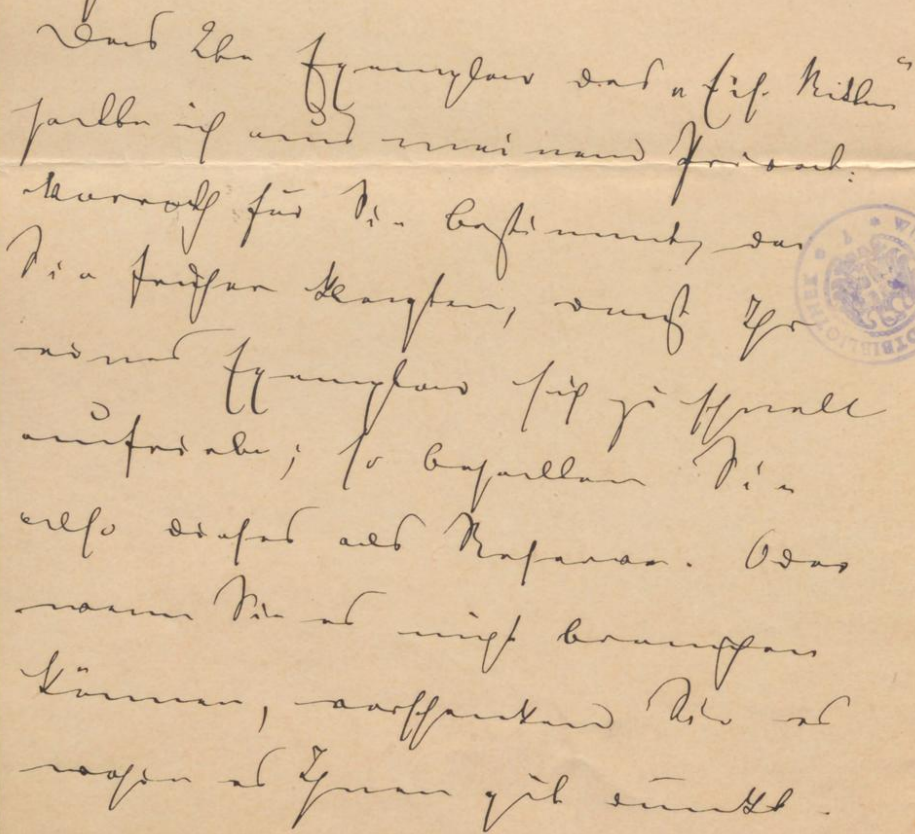 Das 2te Exemplar des „Eis. Ritters“
hatte ich aus meinem Privat-
Vorrath für Sie bestimmt, da
Sie früher klagten, daß Ihr
eines Exemplar sich zu schnell
aufriebe; so behalten Sie
also dieses als Reserve. Oder
wenn Sie es nicht brauchen
können, verschenken Sie es
wohin es Ihnen gut dünkt.